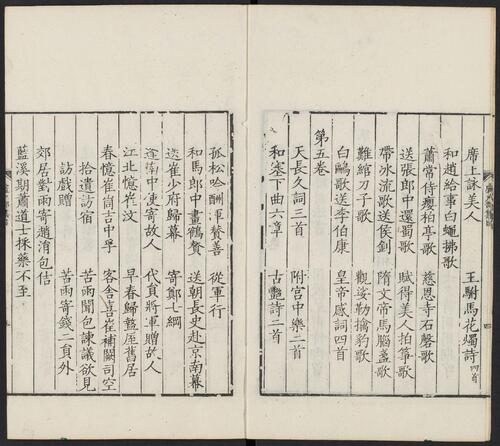 席上詠美人　王駙馬花燭詩四首
和趙給事白蠅拂歌
蕭常侍癭柏亭歌　慈恩寺石磬歌
送張郎中還蜀歌　賦得美人拍箏歌
帶冰流歌送侯釗　隋文帝馬腦盞歌
難綰刀子歌　觀娑勒擒豹歌
白鷗歌送李伯康　皇帝感詞四首
第五卷
天長久詞三首　附宮中樂二首
和塞下曲六章　古艷詩二首
孤松吟酬渾贊善　從軍行
和馬郎中畫鶴贊　送朝長史赴京南幕
送崔少府歸幕　寄鄭七綱
逢南中使寄故人　代員將軍贈故人
江北憶崔汶　早春歸盩厔舊居
春憶崔崗古中孚　客舍喜崔補闕司空
拾遺訪宿　苦雨聞包諫議欲見
訪戲贈　苦雨寄錢二員外
郊居對雨寄趙涓包佶
藍溪期蕭道士採藥不至